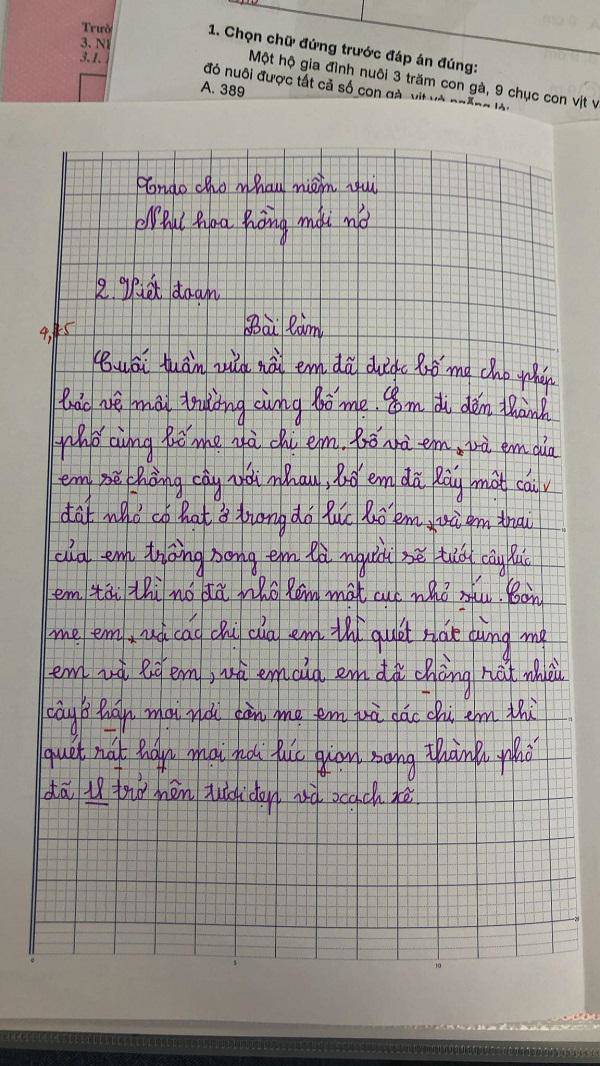 Trườ
3. N
3.1.
1. Chọn chữ đứng trước đáp án đúng:
Một hộ gia đình nuôi 3 trăm con gà, 9 chục con vịt v
đó nuôi được tất cả số con gà, vịt và ngỗng là:
A. 389
Trao cho nhau niềm vui
Như hoa hồng mới nở
2. Viết đoạn
9,75
Bài làm
Cuối tuần vừa rồi em đã được bố mẹ cho phép
bảo vệ môi trường cùng bố mẹ. Em đi đến thành
phố cùng bố mẹ và chị em. bố và em, và em của
em sẽ chồng cây với nhau, bố em đã lấy một cái
đất nhỏ có hạt ở trong đó lúc bố em, và em trai
của em trồng song em là người sẽ tưới cây lúc
em tới thì nó đã nhô lêm một cục nhỏ síu. Còn
mẹ em, và các chị của em thì quét rát cùng mẹ
em và bố em, và em của em đã chồng rất nhiều
cây ở háp mọi nơi còn mẹ em và các chị em thì
quét rát háp mọi nơi lúc gion song thành phố
đã trở nên tươi đẹp và xạch xẽ.
0
5
10